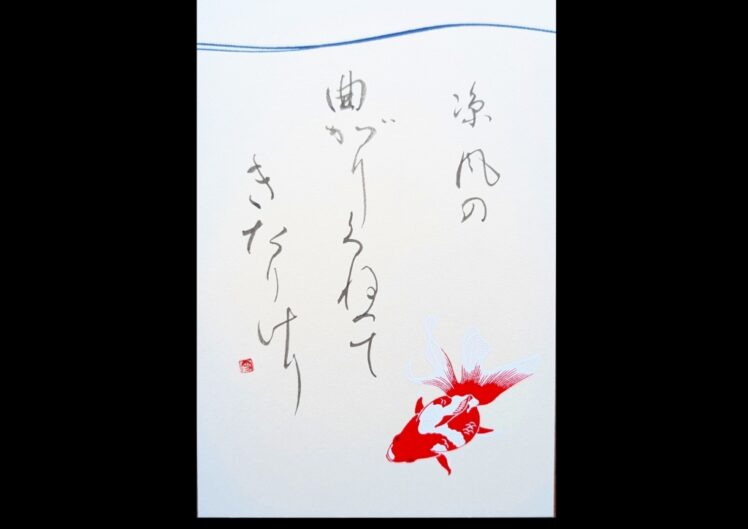 涼風の
曲がりくねて
きたりけり